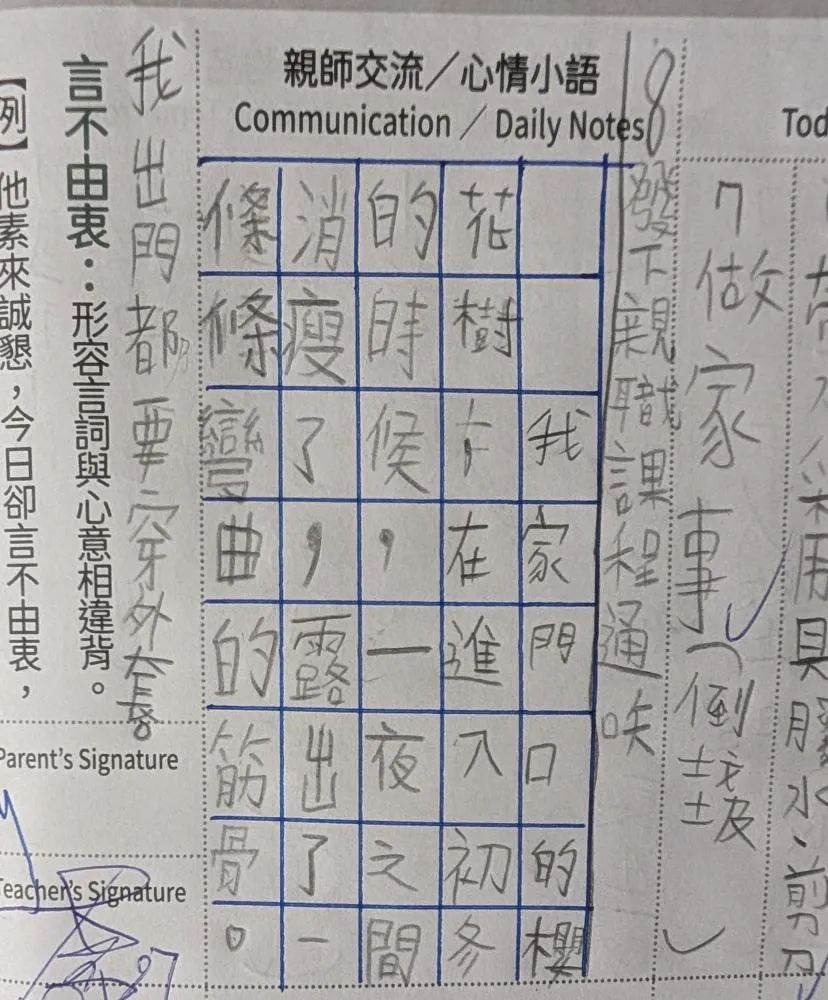 親師交流／心情小語
Communication ／ Daily Notes
Tod
用具膠水、剪刀
7做家事(倒垃圾)
8發下親職課程通
我家門口的櫻
花樹在進入初冬
的時候，一夜之間
消瘦了，露出了一
條條彎曲的筋骨。
我出門都要穿外套
言不由衷：形容言詞與心意相違背。
【例】他素來誠懇，今日卻言不由衷，
Parent's Signature
Teacher's Signature